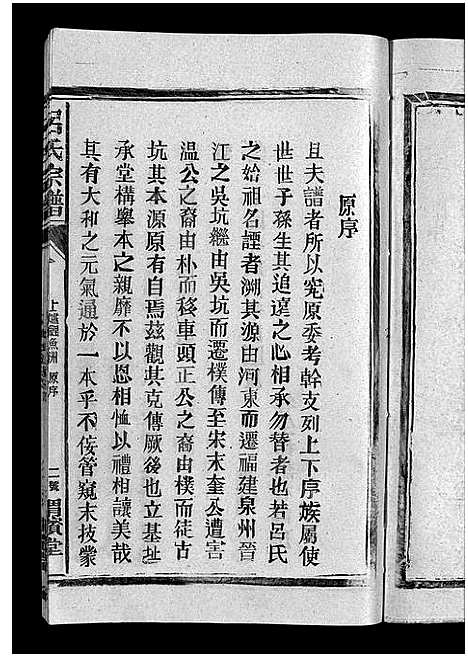 原序
且夫譜者所以宪原委考幹支列上下序族屬使
世世子孫生其追遠之心相承勿替者也若呂氏
之始祖名諲者溯其源由河東而遷福建泉州晉
江之吳坑繼由吳坑而遷樸傳至宋末奎公遭害
溫公之裔由朴而移車頭正公之裔由樸而徒古
坑其本源原有自焉茲觀其克傳厥後也立基址
承堂構舉本之親靡不以恩相恤以禮相讓美哉
其有大和之元氣通於一本乎不侫管窺末技蒙
呂氏宗譜
原序
二號
渭濱堂